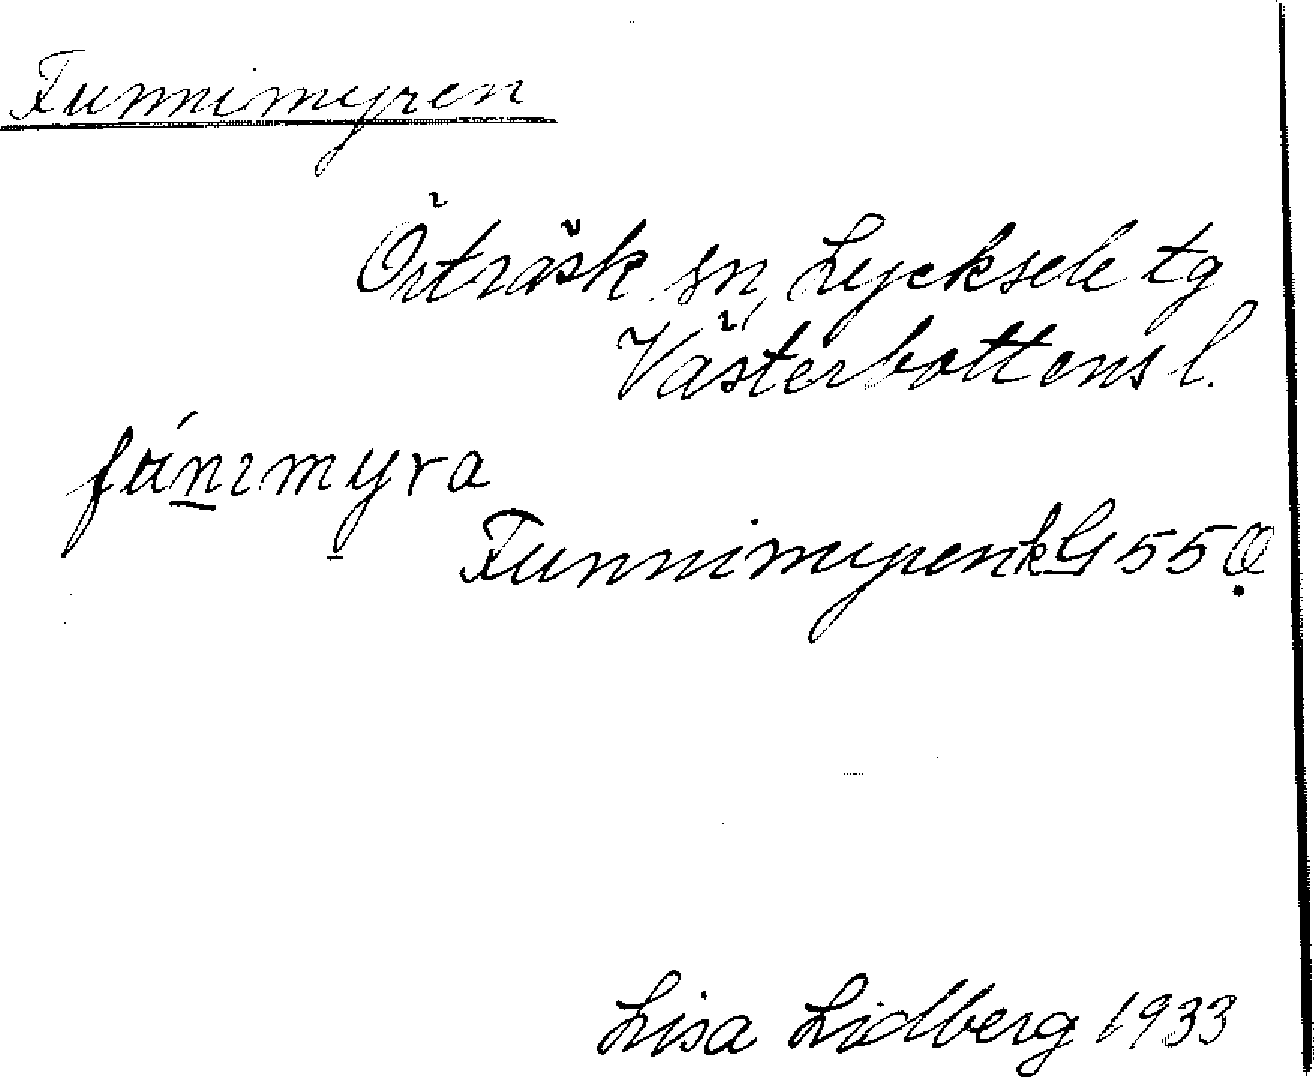 Funnimyren
Örträsk sn, Lycksele tg
Västerbottens l.
fúnımyra
Funnimyren kG 55 Ø
Lisa Lidberg 1933